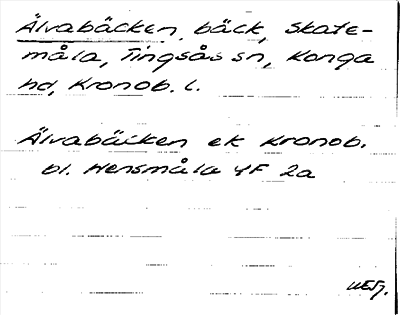 Älvabäcken, bäck, Skate-
måla, Tingsås sn, Konga
hd, Kronob. l.
Älvabäcken ek Kronob.
bl. Hensmåla 4F 2a